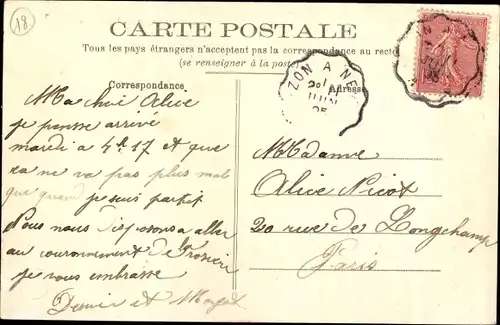 18
CARTE POSTALE
Tous les pays étrangers n'acceptent pas la correspondance au recto
(se renseigner à la poste
Correspondance
Adresse
ZON A NE
JUIN
05
Ma chui Alice
je pense arrivé
mardi a 4h17 et que
ca ne va pas plus mal
que quand je suis partit
Nous nous disposons a aller
au couronnement de
je vous embrasse
et
Madame
Alice Nicot
20 rue de Longchamp
Paris